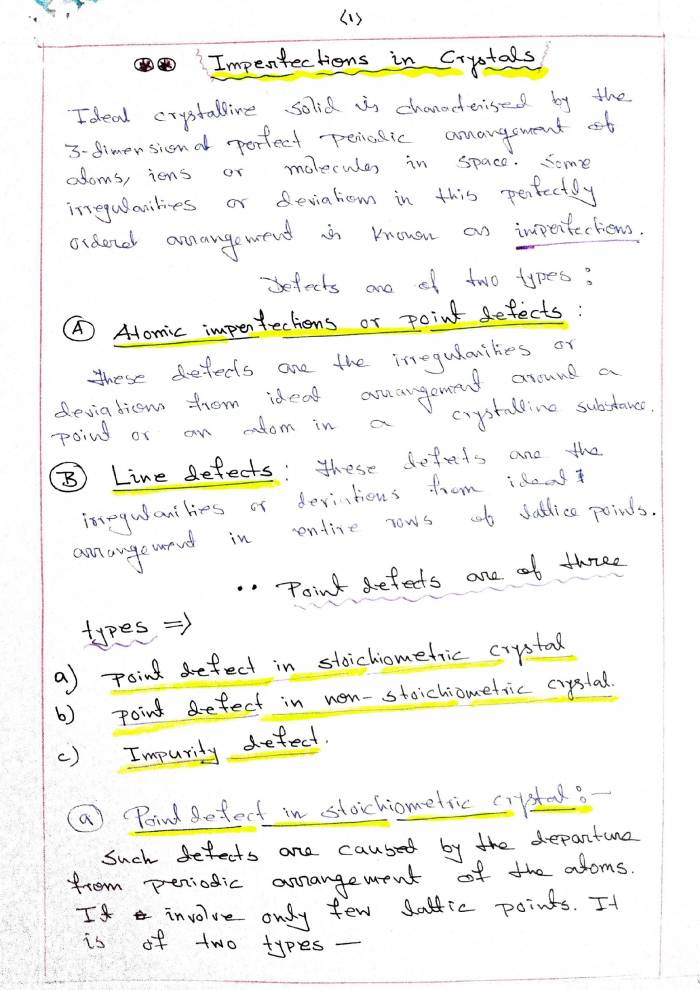 <1>
Imperfections in Crystals
Ideal crystalline solid is characterised by the
3-dimensional perfect periodic arrangement of
atoms, ions or molecules in space. Some
irregularities or deviations in this perfectly
ordered arrangement is known as imperfections.
Defects are of two types :
(A) Atomic imperfections or point defects :
These defects are the irregularities or
deviations from ideal arrangement around a
point or an atom in a crystalline substance.
(B) Line defects : These defects are the
irregularities or deviations from ideal
arrangement in entire rows of lattice points.
•• Point defects are of three
types =>
a) Point defect in stoichiometric crystal
b) point defect in non-stoichiometric crystal.
c) Impurity defect.
(a) Point defect in stoichiometric crystal :-
Such defects are caused by the departure
from periodic arrangement of the atoms.
It involve only few lattic points. It
is of two types —